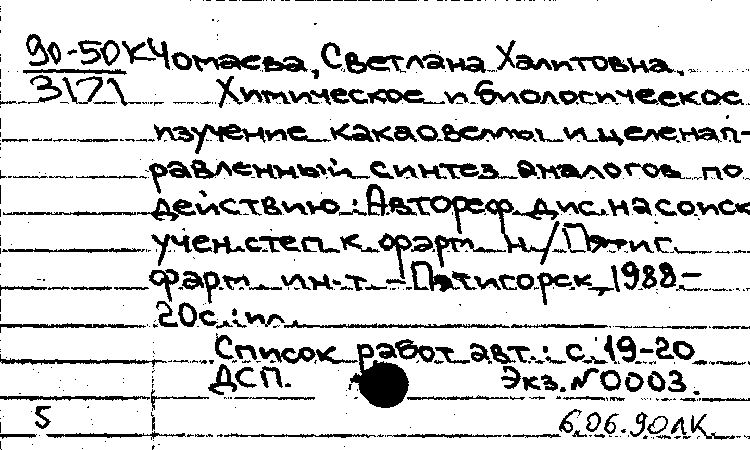 90-50К Чомаева, Светлана Халитовна.
3171 Химическое и биологическое
изучение какаовеллы и целенап-
равленный синтез аналогов по
действию: Автореф. дис. на соиск
учен. степ. к. фарм. н. / Пятиг.
фарм. ин-т. – Пятигорск, 1988. –
20с.: ил.
Список работ авт.: с. 19-20
ДСП. Экз. N0003.
5 6.06.90ЛК.